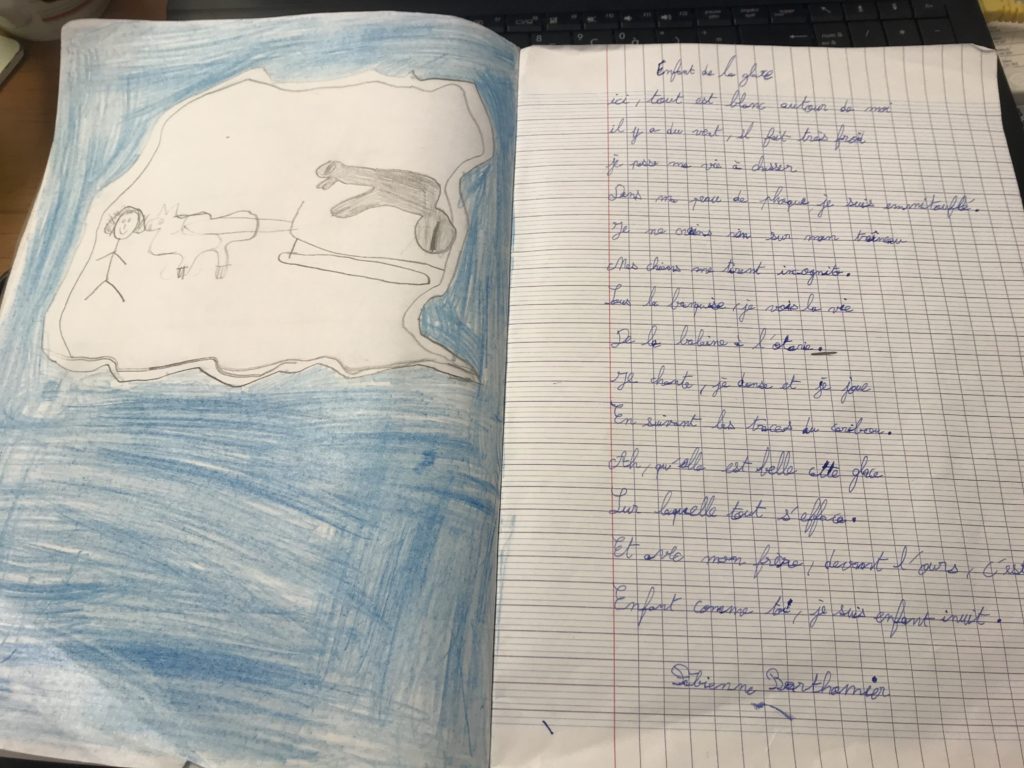 Enfant de la glace
ici, tout est blanc autour de moi
il y a du vent, il fait très froid
je passe ma vie à chasser
Dans ma peau de phoque je suis emmitouflé.
Je ne crains rien sur mon traîneau
Mes chiens me tirent incognito.
Sous la banquise, je vois la vie
De la baleine à l'otarie.
Je chante, je danse et je joue
En suivant les traces du caribou.
Ah, qu'elle est belle cette glace
Sur laquelle tout s'efface.
Et avec mon frère, devant l'ours, c'est
Enfant comme toi, je suis enfant inuit.
Fabienne Berthomier